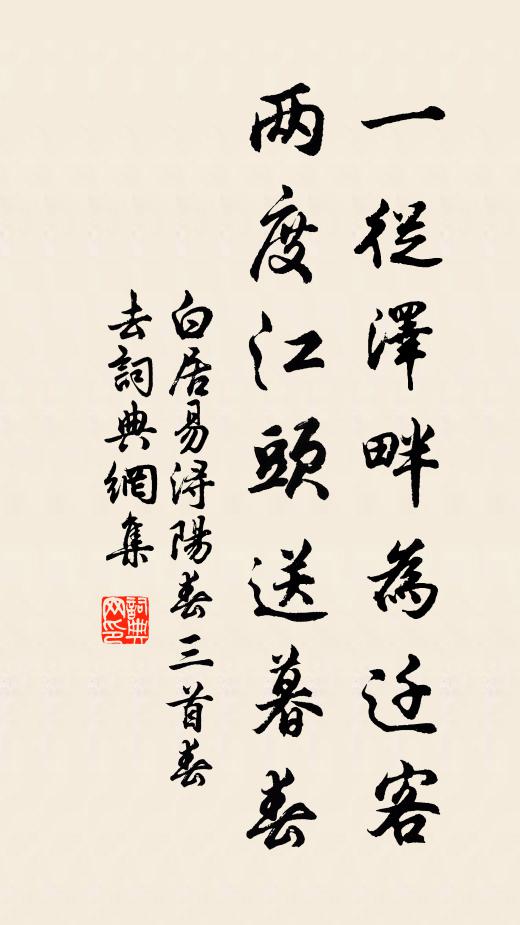 一從澤畔為迁客
两度江頭送暮春
白居易潯陽春三首春
去詞典網集
詞典
网印